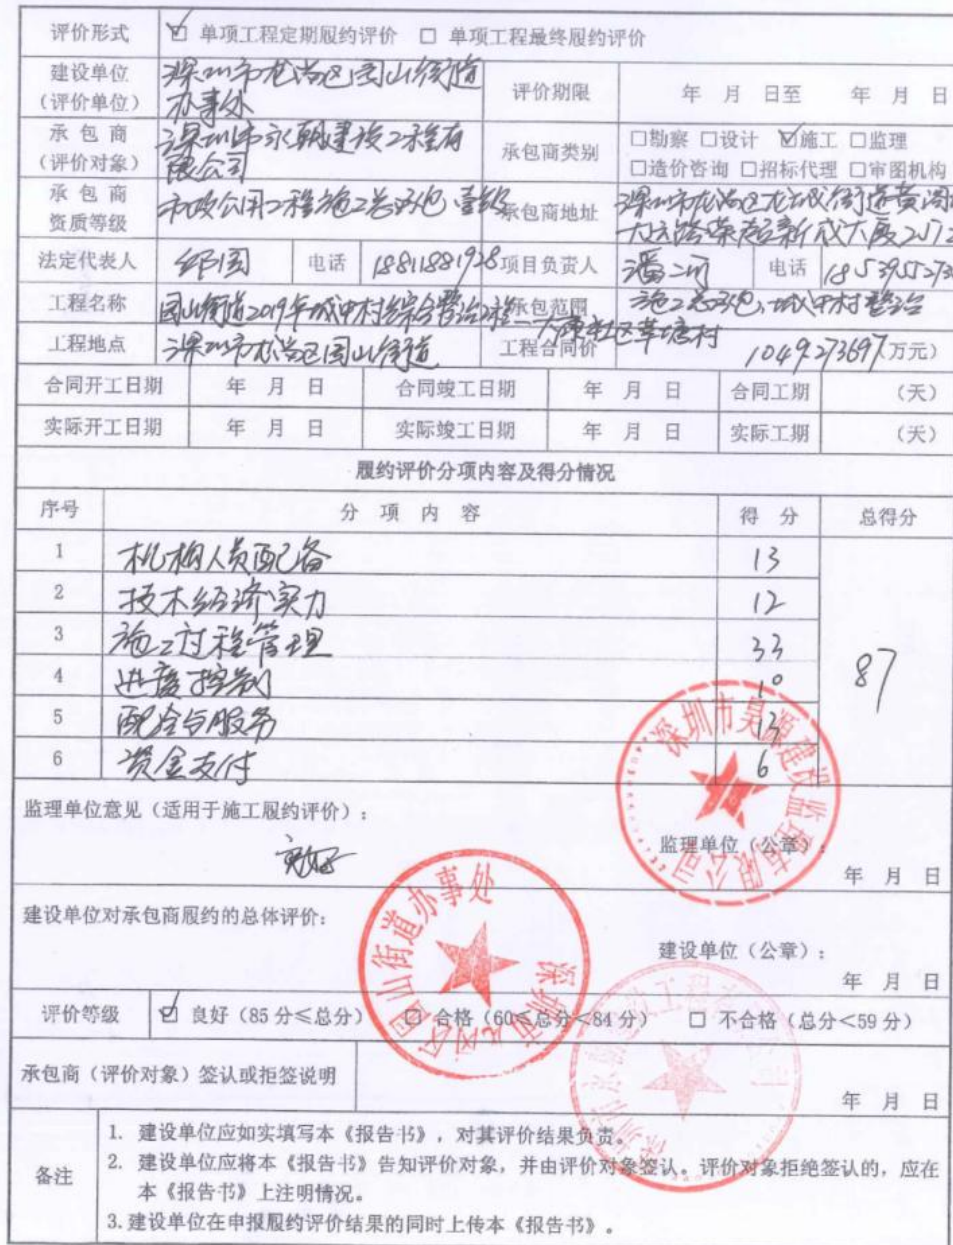 评价形式 ☑ 单项工程定期履约评价 □ 单项工程最终履约评价
建设单位（评价单位） 深圳市龙岗区园山街道办事处 评价期限 年 月 日至 年 月 日
承包商（评价对象） 深圳市永朝建设工程有限公司 承包商类别 □勘察 □设计 ☑施工 □监理
□造价咨询 □招标代理 □审图机构
承包商资质等级 市政公用工程施工总承包壹级 承包商地址 深圳市龙岗区龙城街道黄阁
法定代表人 电话 18811881928 项目负责人 电话
工程名称 园山街道2019年城中村综合整治工程—大康社区莘塘村 承包范围 施工总承包、城中村整治
工程地点 深圳市龙岗区园山街道 工程合同价 1049.273697（万元）
合同开工日期 年 月 日 合同竣工日期 年 月 日 合同工期 （天）
实际开工日期 年 月 日 实际竣工日期 年 月 日 实际工期 （天）
履约评价分项内容及得分情况
序号 分 项 内 容 得 分 总得分
1 机构人员配备 13
2 技术经济实力 12
3 施工过程管理 33
4 进度控制 10
87
5 配合与服务 13
6 资金支付 6
监理单位意见（适用于施工履约评价）：
监理单位（公章）：
年 月 日
建设单位对承包商履约的总体评价：
建设单位（公章）：
年 月 日
评价等级 ☑ 良好（85分≤总分） □ 合格（60≤总分<84分） □ 不合格（总分<59分）
承包商（评价对象）签认或拒签说明
年 月 日
备注
1. 建设单位应如实填写本《报告书》，对其评价结果负责。
2. 建设单位应将本《报告书》告知评价对象，并由评价对象签认。评价对象拒绝签认的，应在
本《报告书》上注明情况。
3.建设单位在申报履约评价结果的同时上传本《报告书》。
深圳市昊源建设监理有限公司
深圳市龙岗区园山街道办事处